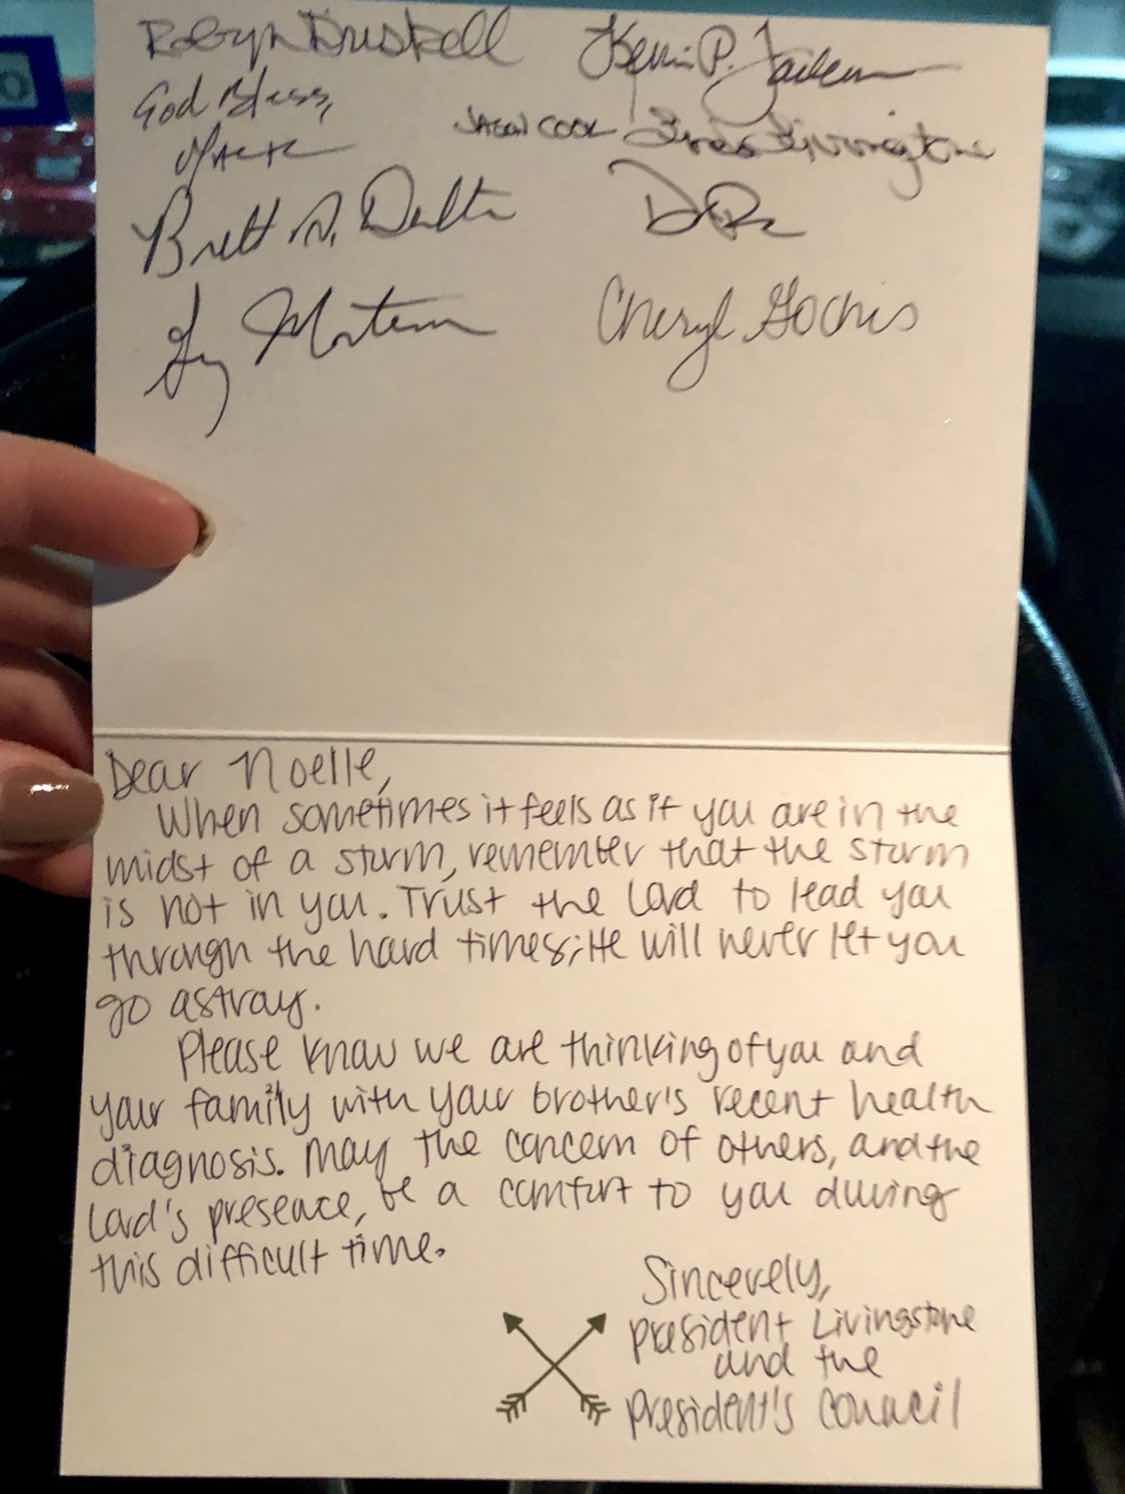 Robyn Driskell
Kevin P. Jackson
God Bless,
JASON COOK
Linda Livingstone
Brett A. Dalton
Cheryl Gochis
Dear Noelle,
When sometimes it feels as if you are in the
midst of a storm, remember that the storm
is not in you. Trust the Lord to lead you
through the hard times; He will never let you
go astray.
Please know we are thinking of you and
your family with your brother's recent health
diagnosis. May the concern of others, and the
Lord's presence, be a comfort to you during
this difficult time.
Sincerely,
President Livingstone
and the
President's Council